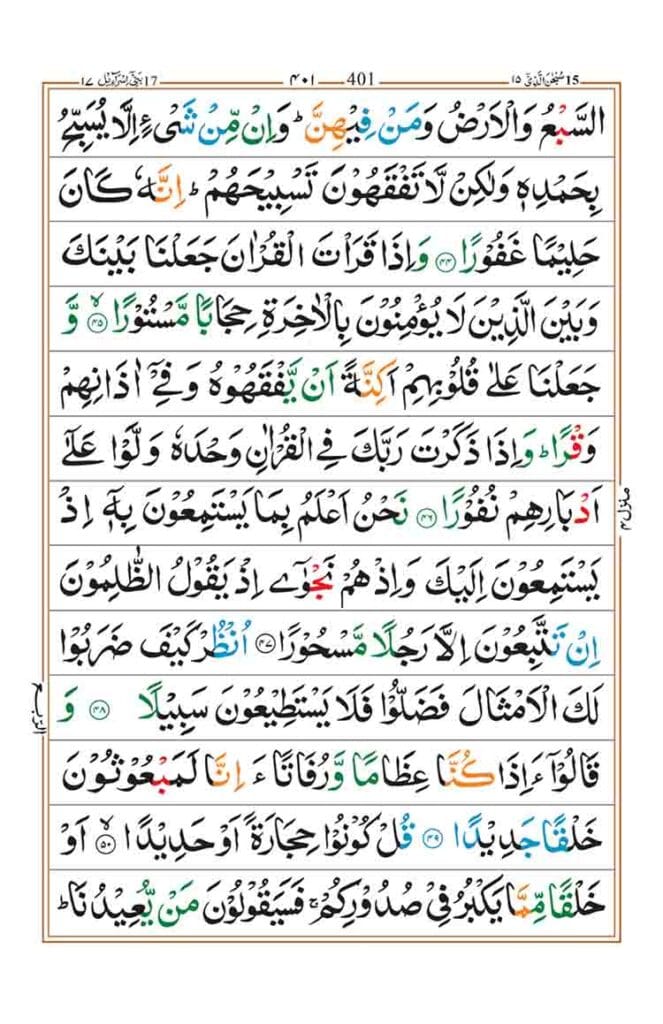 15 سُبْحٰنَ الَّذِیْۤ ۱۵ 401 ۴۰۱ 17 بَنِیْۤ اِسْرَآءِیْل ۱۷
السَّبْعُ وَالْاَرْضُ وَمَنْ فِیْهِنَّ ؕ وَاِنْ مِّنْ شَیْءٍ اِلَّا یُسَبِّحُ
بِحَمْدِهٖ وَلٰكِنْ لَّا تَفْقَهُوْنَ تَسْبِیْحَهُمْ ؕ اِنَّهٗ كَانَ
حَلِیْمًا غَفُوْرًا ﴿۴۴﴾ وَاِذَا قَرَاْتَ الْقُرْاٰنَ جَعَلْنَا بَیْنَكَ
وَبَیْنَ الَّذِیْنَ لَا یُؤْمِنُوْنَ بِالْاٰخِرَةِ حِجَابًا مَّسْتُوْرًا ﴿۴۵﴾ۙ وَّ
جَعَلْنَا عَلٰی قُلُوْبِهِمْ اَكِنَّةً اَنْ یَّفْقَهُوْهُ وَفِیْۤ اٰذَانِهِمْ
وَقْرًا ؕ وَاِذَا ذَكَرْتَ رَبَّكَ فِی الْقُرْاٰنِ وَحْدَهٗ وَلَّوْا عَلٰۤی
اَدْبَارِهِمْ نُفُوْرًا ﴿۴۶﴾ نَحْنُ اَعْلَمُ بِمَا یَسْتَمِعُوْنَ بِهٖۤ اِذْ
یَسْتَمِعُوْنَ اِلَیْكَ وَاِذْ هُمْ نَجْوٰۤی اِذْ یَقُوْلُ الظّٰلِمُوْنَ
اِنْ تَتَّبِعُوْنَ اِلَّا رَجُلًا مَّسْحُوْرًا ﴿۴۷﴾ اُنْظُرْ كَیْفَ ضَرَبُوْا
لَكَ الْاَمْثَالَ فَضَلُّوْا فَلَا یَسْتَطِیْعُوْنَ سَبِیْلًا ﴿۴۸﴾ وَ
قَالُوْۤا ءَاِذَا كُنَّا عِظَامًا وَّرُفَاتًا ءَاِنَّا لَمَبْعُوْثُوْنَ
خَلْقًا جَدِیْدًا ﴿۴۹﴾ قُلْ كُوْنُوْا حِجَارَةً اَوْ حَدِیْدًا ﴿۵۰﴾ۙ اَوْ
خَلْقًا مِّمَّا یَكْبُرُ فِیْ صُدُوْرِكُمْ ۚ فَسَیَقُوْلُوْنَ مَنْ یُّعِیْدُنَا ؕ
منزل ۴
الربع